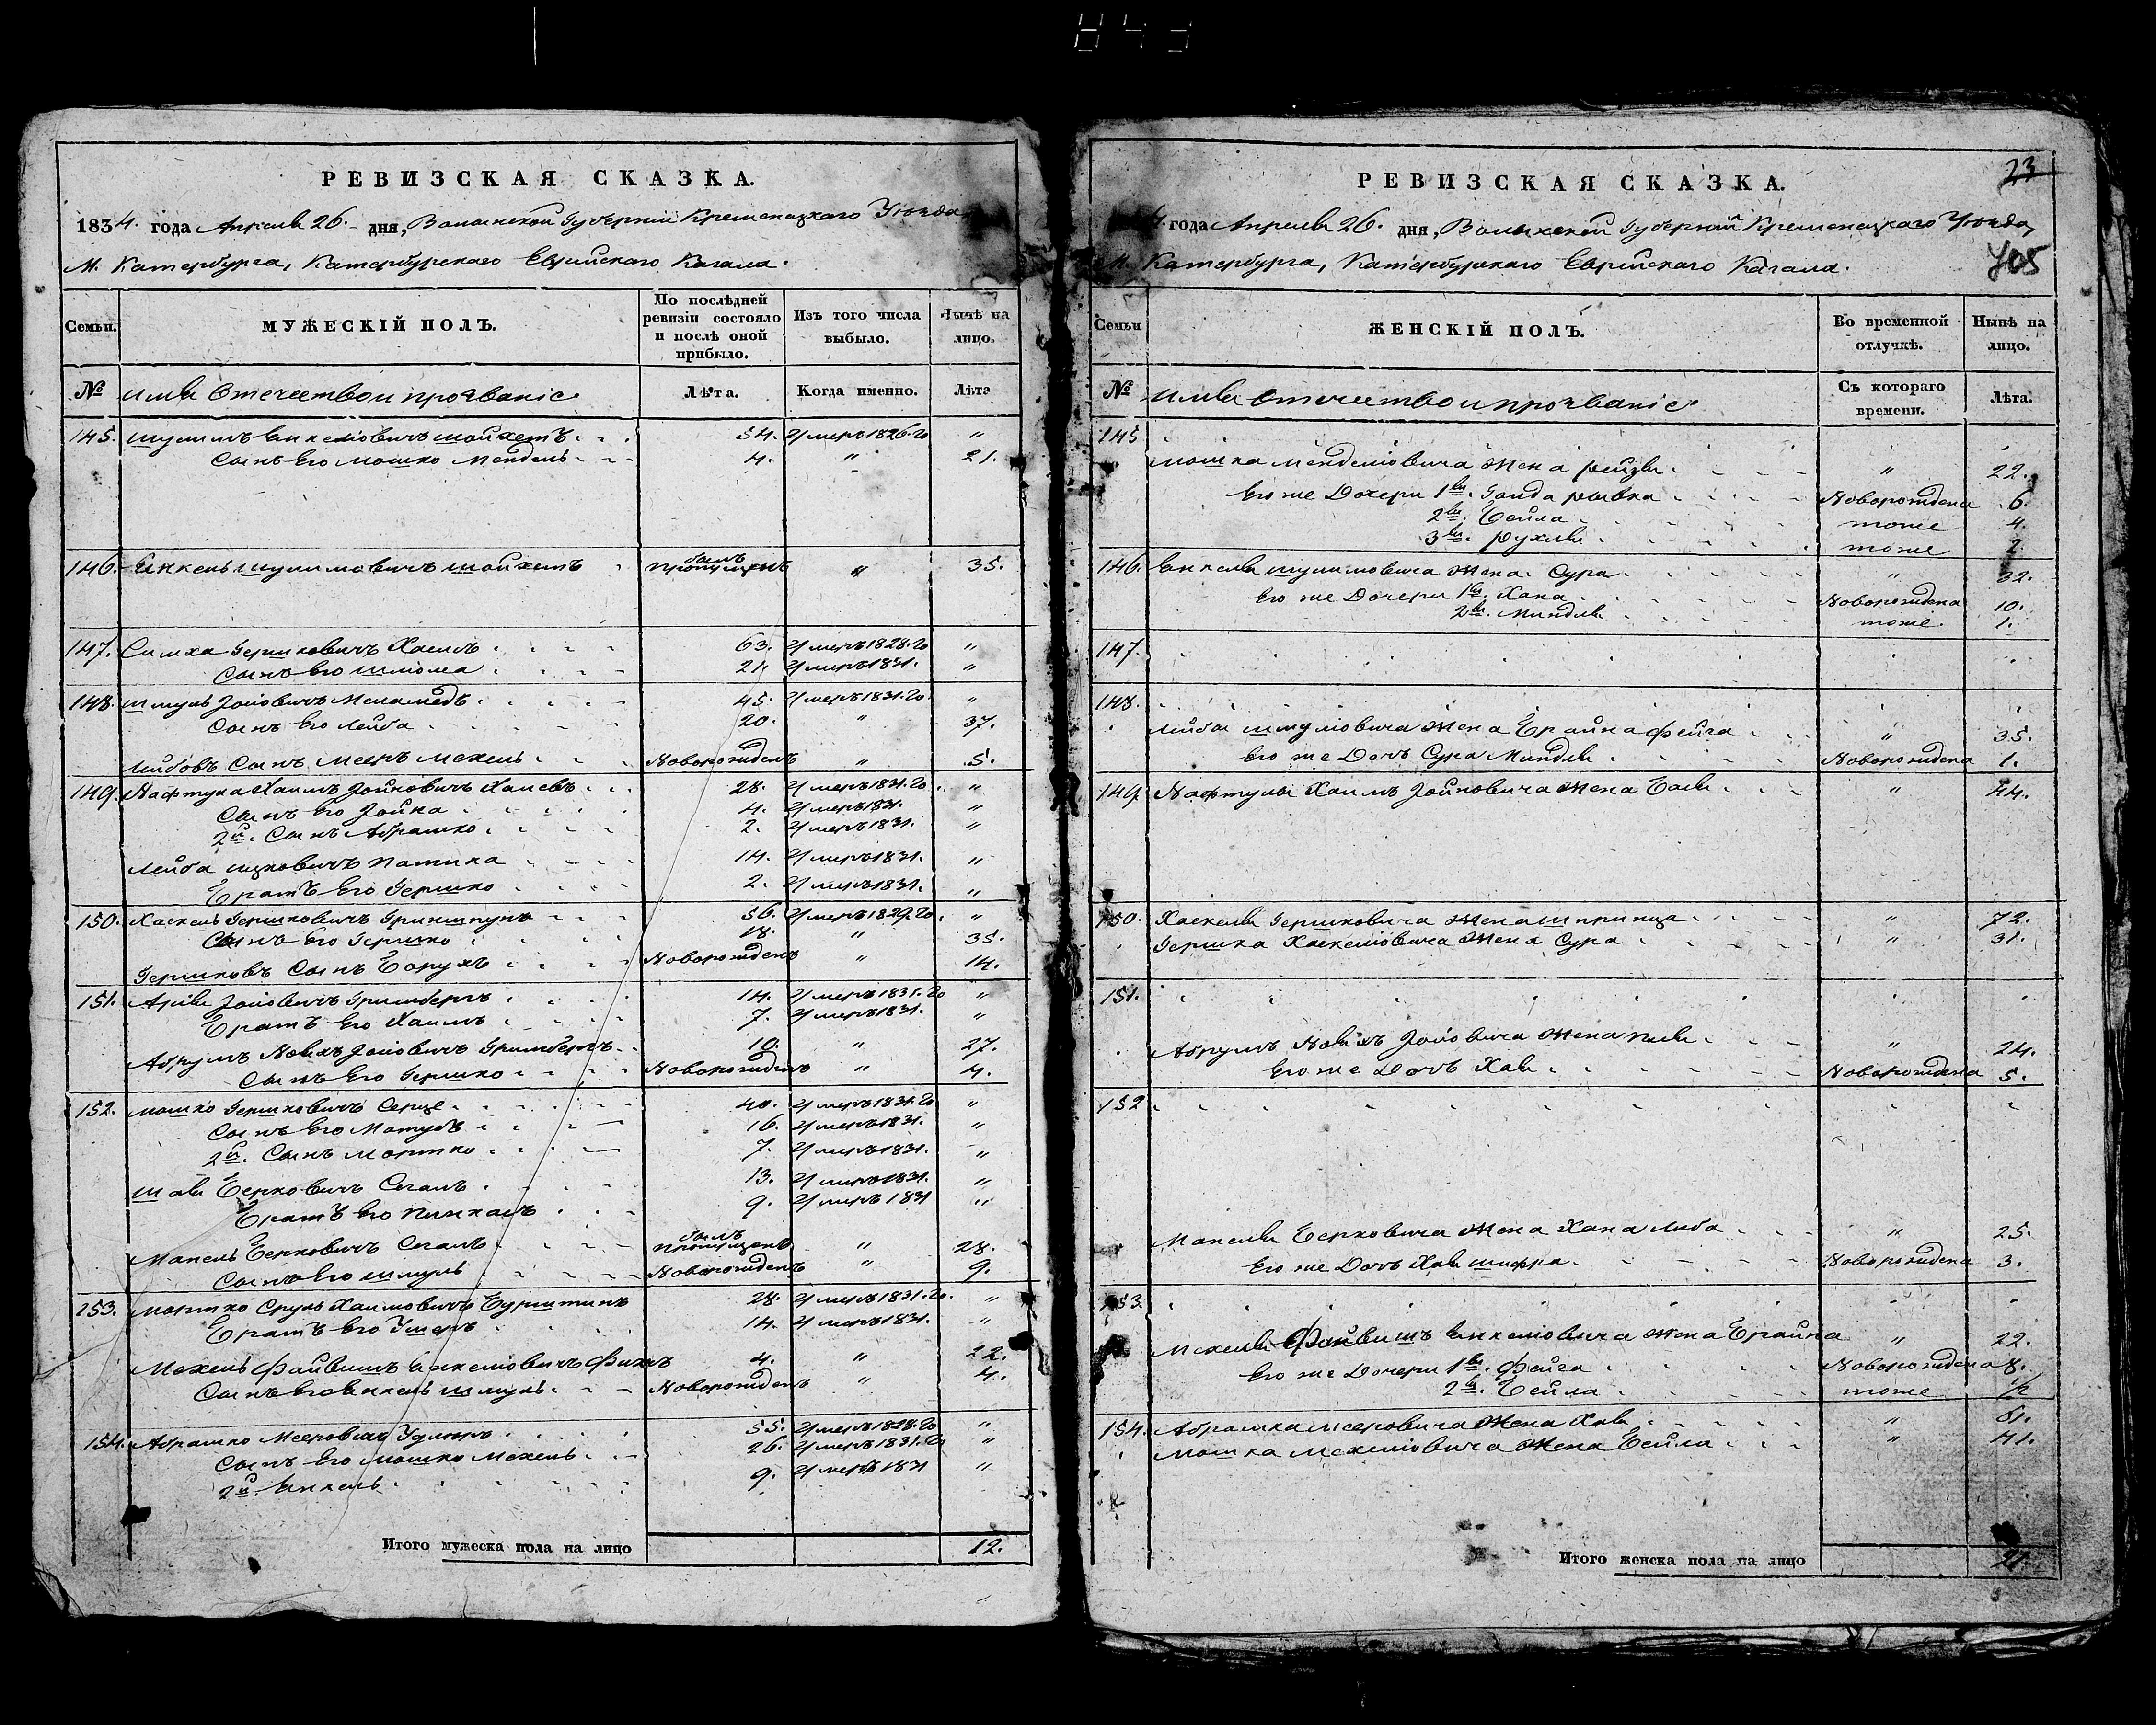 РЕВИЗСКАЯ СКАЗКА.
1834. года Апреля 26. дня, Волынской Губернии Кременецкого Уезда,
М. Катербурга, Катербурского Еврейского Кагала.
Семьи.
МУЖЕСКІЙ ПОЛЪ.
По послѣдней ревизіи состояло и послѣ оной прибыло.
Изъ того числа выбыло.
Нынѣ на лицо.
№ Имя Отечество и прозваніе
Лѣта.
Когда именно.
Лѣта
145. Шулимъ Янкелiовичъ Шойхетъ 54. Умеръ 1826. го "
Сынъ Его Мошко Мендель 4. " 21.
146. Янкель Шулимовичъ Шойхетъ былъ пропущенъ " 35.
147. Симха Гершковичъ Хаимъ 63. Умеръ 1828. го "
Сынъ Его Шлiома 21. Умеръ 1831. "
148. Шмуль Меламедъ 45. Умеръ 1831. го "
Сынъ Его Лейба 20. " 37.
Лейбовъ Сынъ Мееръ Мехель Новорожденъ " 5.
149. Нафтула Хаимъ 28. Умеръ 1831. го "
Сынъ Его 4. Умеръ 1831. "
2й. Сынъ Абрашко 2. Умеръ 1831. "
Лейба Ицковичъ 14. Умеръ 1831. "
Братъ Его Гершко 2. Умеръ 1831. "
150. Хаскель Гершковичъ Гриншпунъ 56. Умеръ 1827. го "
Сынъ Его Гершко 18. " 35.
Гершковъ Сынъ Борухъ Новорожденъ " 14.
151. Арiя Гринбергъ 14. Умеръ 1831. го "
Братъ Его Хаимъ 7. Умеръ 1831. "
Абрумъ Гринбергъ 10. " 27.
Сынъ Его Гершко Новорожденъ " 4.
152. Мошко Гершковичъ 40. Умеръ 1831. го "
Сынъ Его 16. Умеръ 1831. "
2й. Сынъ Мортко 7. Умеръ 1831. "
Шая Берковичъ Сегалъ 13. Умеръ 1831. "
Братъ Его Пинхасъ 9. Умеръ 1831 "
Берковичъ Сегалъ былъ пропущенъ " 28.
Сынъ Его Шмуль Новорожденъ " 9.
153. Мортко Сруль Хаимовичъ Бурштинъ 28. Умеръ 1831. го "
Братъ Его Ушеръ 14. Умеръ 1831. "
Мехель Файвишъ Янкелiовичъ 4. " 22.
Сынъ Его Янкель Шмуль Новорожденъ " 4.
154. Абрашко Мееровичъ 55. Умеръ 1828. го "
Сынъ Его Мошко Мехель 26. Умеръ 1831. го "
2й. Янкель 9. Умеръ 1831 "
Итого мужеска пола на лицо 12.
23
РЕВИЗСКАЯ СКАЗКА.
4. года Апреля 26. дня, Волынской Губерний Кременецкого Уезда,
М. Катербурга, Катербурского Еврейского Кагала.
705
Семьи
ЖЕНСКІЙ ПОЛЪ.
Во временной отлучкѣ.
Нынѣ на лицо.
№ Имя Отечество и прозваніе
Съ котораго времени.
Лѣта.
145
Мошка Менделiовича Жена Рейзя " 22.
Его же Дочери 1я. Ривка Новорожденна 6.
2я. Бейла тоже 4.
3я. Рухля тоже 2.
146. Янкеля Шулимовича Жена Сура " 32.
Его же Дочери 1я. Хана Новорожденна 10.
2я. Миндля тоже. 1.
147.
148.
Лейбы Шмулiовича Жена Брайна Фейга " 35.
Его же Дочь Сура Миндля Новорожденна 1.
149. Нафтулы Хаимъ Жена Бася " 44.
150. Хаскеля Гершковича Жена Шпринца " 72.
Гершка Хаскелiовича Жена Сура " 31.
151.
Абрумъ Жена " 24.
Его же Дочь Хая Новорожденна 5.
152
Берковича Жена Хана Либа " 25.
Его же Дочь Хая Шифра Новорожденна 3.
153.
Мехеля Файвишъ Янкелiовича Жена Брайна " 22.
Его же Дочери 1я. Фейга Новорожденна 8.
2я. Бейла тоже 1/2
154. Абрашка Мееровича Жена Хая " 61.
Мошка Мехелiовича Жена Бейла " 41.
Итого женска пола на лицо 21.